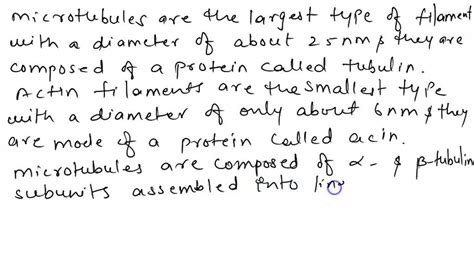 microtubules are the largest type of filament
with a diameter of about 25nm & they are
composed of a protein called tubulin.
Actin filaments are the smallest type
with a diameter of only about 6nm & they
are mode of a protein called acin.
microtubules are composed of α- & β-tubulin
subunits assembled into lin